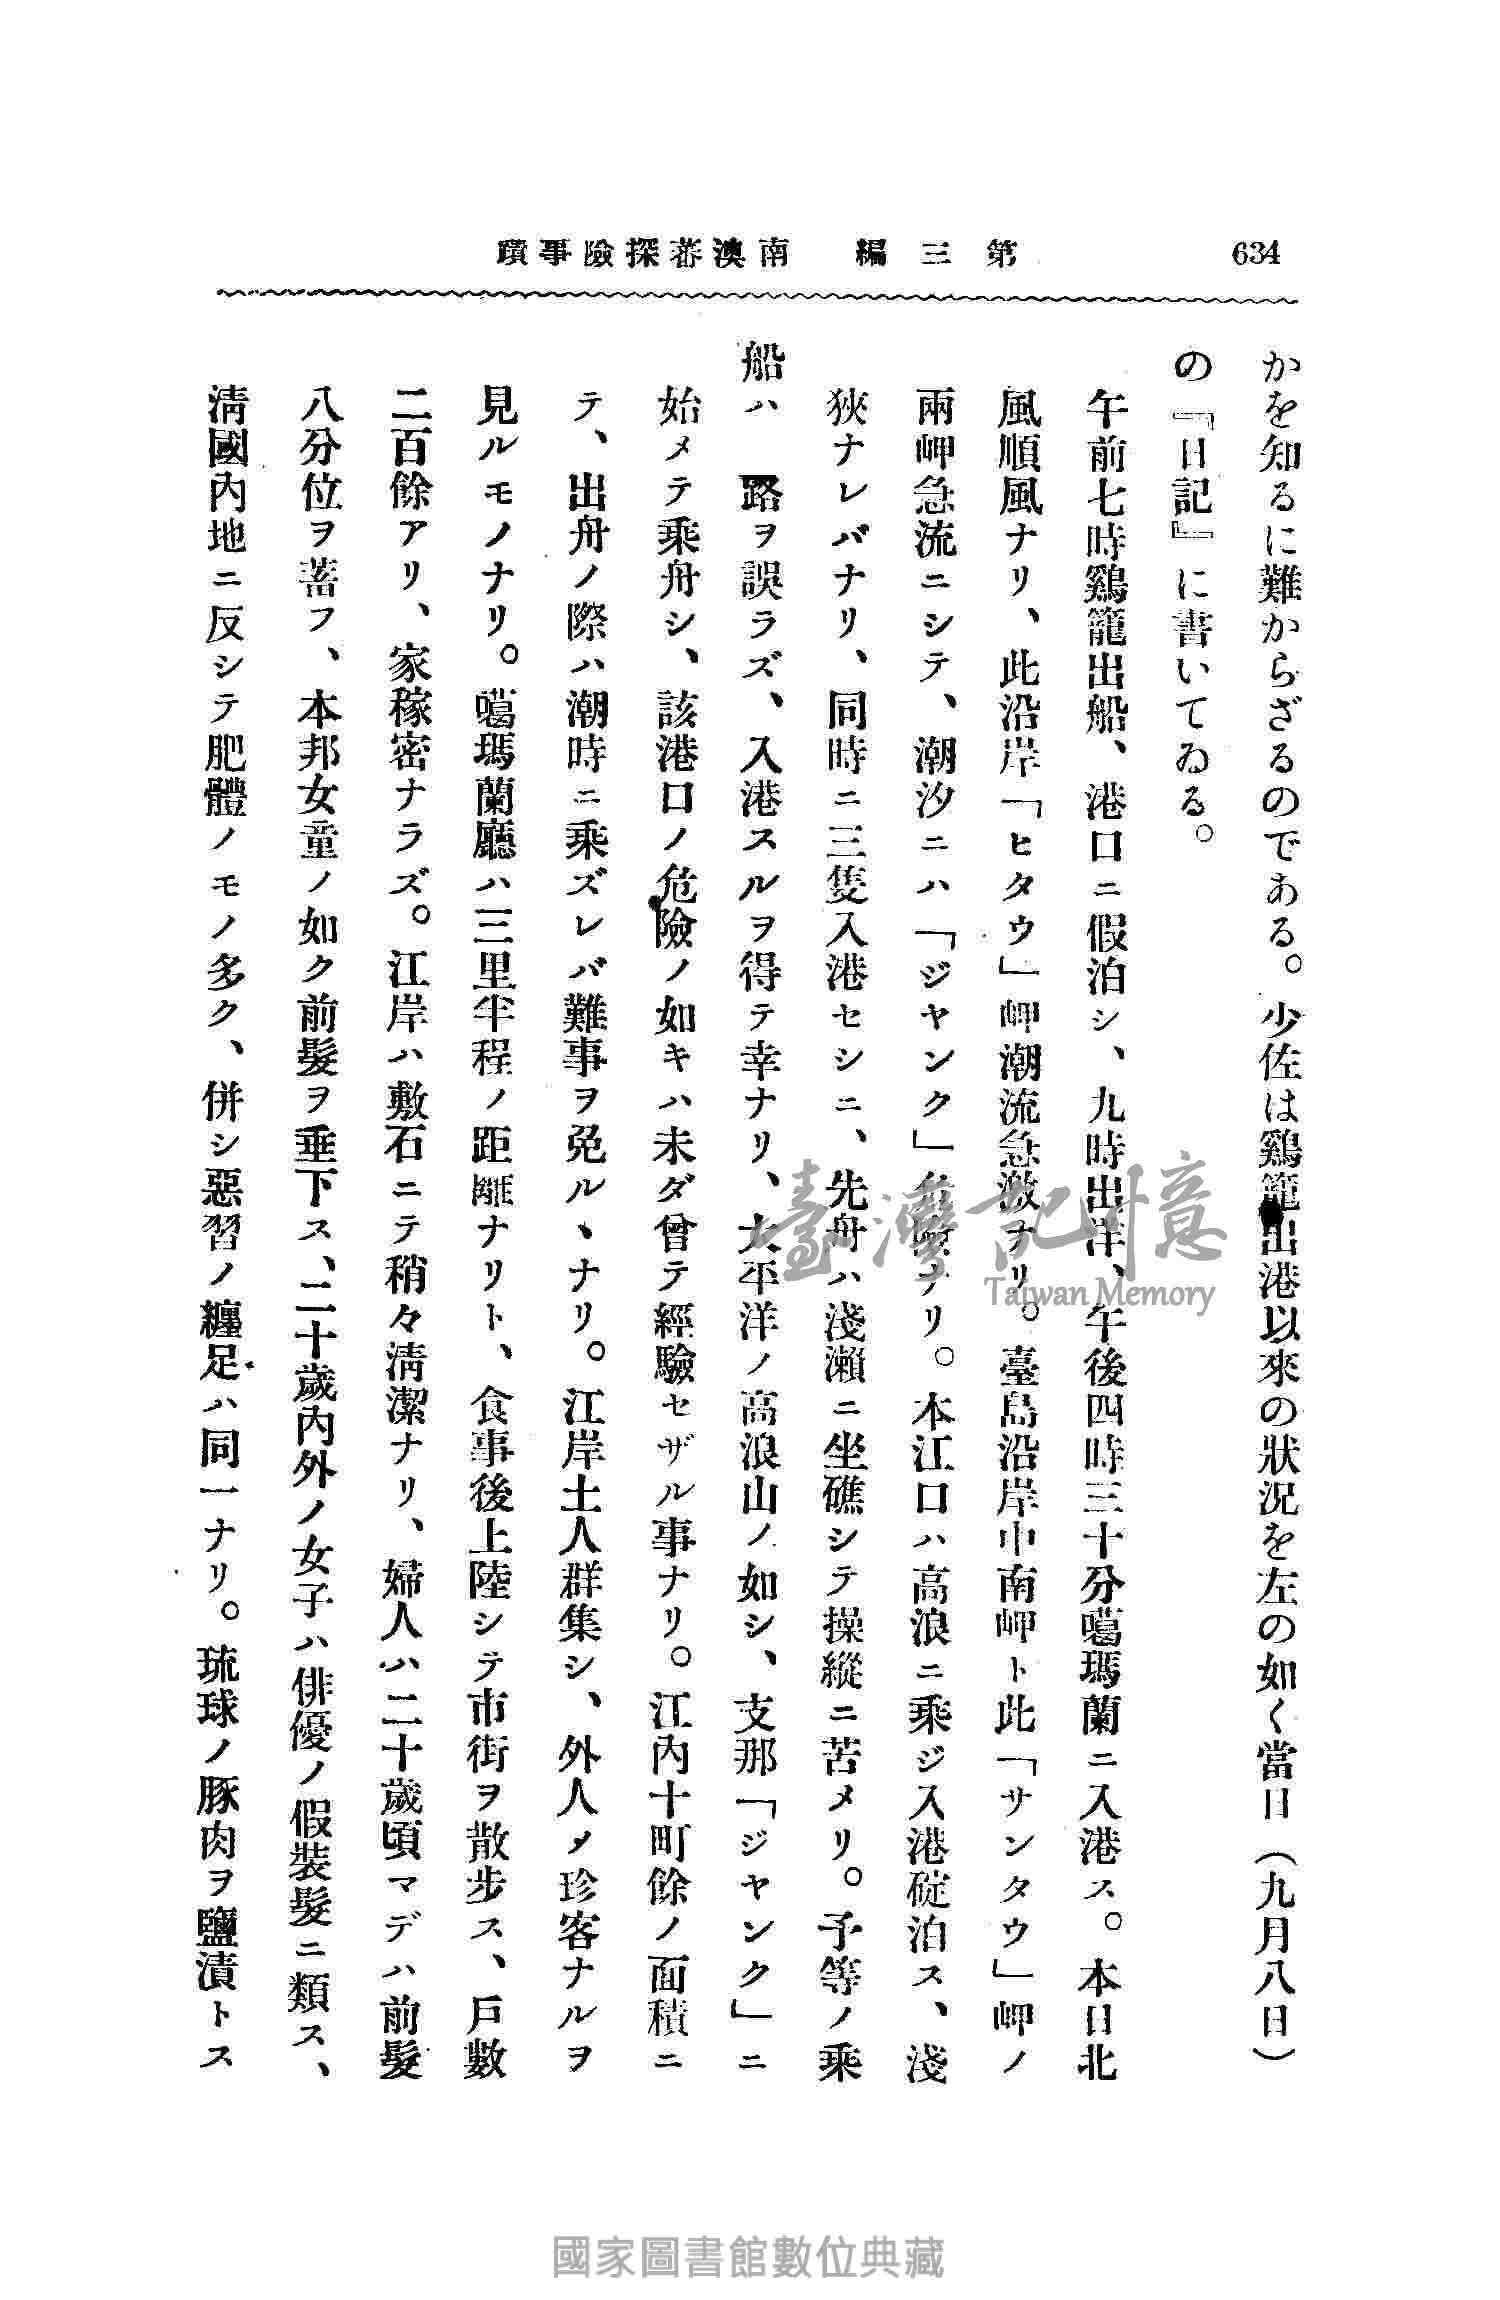 634
第三編　南澳蕃探險事蹟
かを知るに難からざるのである。少佐は鷄籠出港以來の狀況を左の如く當日（九月八日）
の『日記』に書いてゐる。
午前七時鷄籠出船、港口ニ假泊シ、九時出洋、午後四時三十分噶瑪蘭ニ入港ス。本日北
風順風ナリ、此沿岸「ヒタウ」岬潮流急激ナリ。臺島沿岸中南岬ト此「サンタウ」岬ノ
兩岬急流ニシテ、潮汐ニハ「ジヤンク」危險ナリ。本江口ハ高浪ニ乘ジ入港碇泊ス、淺
狹ナレバナリ、同時ニ三隻入港セシニ、先舟ハ淺瀨ニ坐礁シテ操縱ニ苦メリ。予等ノ乘
船ハ　路ヲ誤ラズ、入港スルヲ得テ幸ナリ、太平洋ノ高浪山ノ如シ、支那「ジヤンク」ニ
始メテ乘舟シ、該港口ノ危險ノ如キハ未ダ曾テ經驗セザル事ナリ。江內十町餘ノ面積ニ
テ、出舟ノ際ハ潮時ニ乘ズレバ難事ヲ免ルヽナリ。江岸土人群集シ、外人メ珍客ナルヲ
見ルモノナリ。噶瑪蘭廳ハ三里半程ノ距離ナリト、食事後上陸シテ市街ヲ散步ス、戶數
二百餘アリ、家稼密ナラズ。江岸ハ敷石ニテ稍々淸潔ナリ、婦人ハ二十歲頃マデハ前髮
八分位ヲ蓄フ、本邦女童ノ如ク前髮ヲ垂下ス、二十歲內外ノ女子ハ俳優ノ假裝髮ニ類ス、
淸國內地ニ反シテ肥體ノモノ多ク、併シ惡習ノ纏足ハ同一ナリ。琉球ノ豚肉ヲ鹽漬トス
臺灣記憶
Taiwan Memory
國家圖書館數位典藏